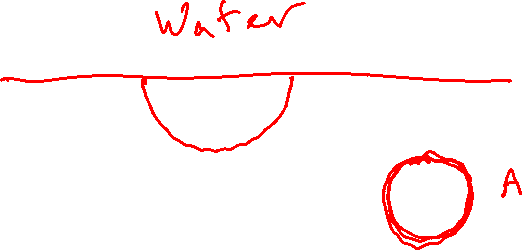 Water
A